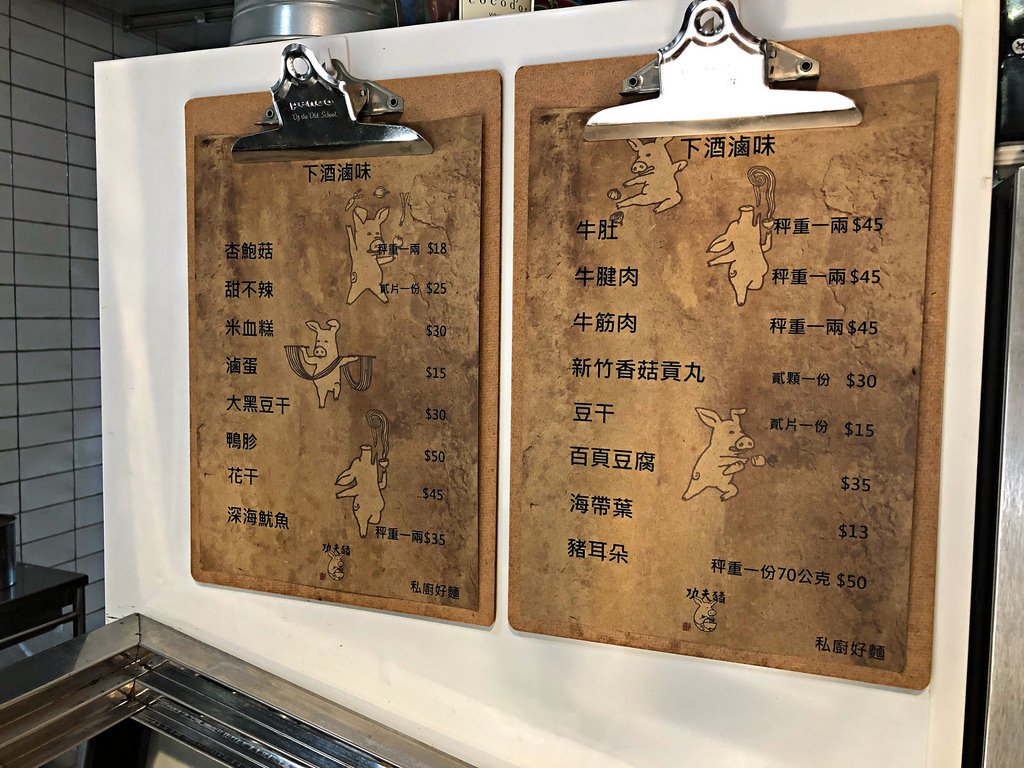 cocodor
Of the Old School.
下酒滷味
杏鮑菇 秤重一兩 $18
甜不辣 貳片一份 $25
米血糕 $30
滷蛋 $15
大黑豆干 $30
鴨胗 $50
花干 $45
深海魷魚 秤重一兩$35
功夫豬
私廚好麵
下酒滷味
牛肚 秤重一兩 $45
牛腱肉 秤重一兩 $45
牛筋肉 秤重一兩 $45
新竹香菇貢丸 貳顆一份 $30
豆干 貳片一份 $15
百頁豆腐 $35
海帶葉 $13
豬耳朵 秤重一份70公克 $50
功夫豬
私廚好麵